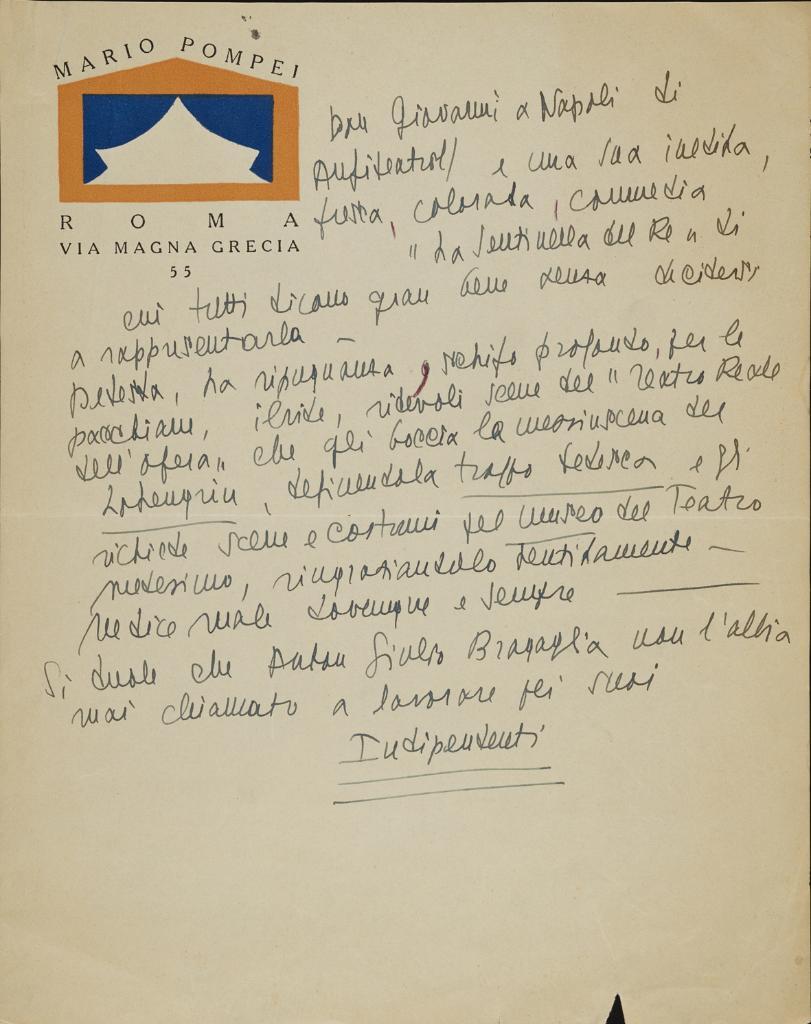 MARIO POMPEI
ROMA
VIA MAGNA GRECIA
55
Don Giovanni a Napoli di
Anfiteatrof/ e una sua inedita,
fresca, colorata, commedia
"La Sentinella del Re" di
cui tutti dicono gran bene senza decidersi
a rappresentarla —
Detesta, ha ripugnanza, schifo profondo, per le
pacchiane, ibride, ridevoli scene del "Teatro Reale
dell'Opera" che gli boccia la messinscena del
Lohengrin, definendola troppo tedesca e gli
richiede scene e costumi pel museo del Teatro
medesimo, ringraziandolo sentitamente —
Ne dice male dovunque e sempre —
Si duole che Anton Giulio Bragaglia non l'abbia
mai chiamato a lavorare pei suoi
Indipendenti